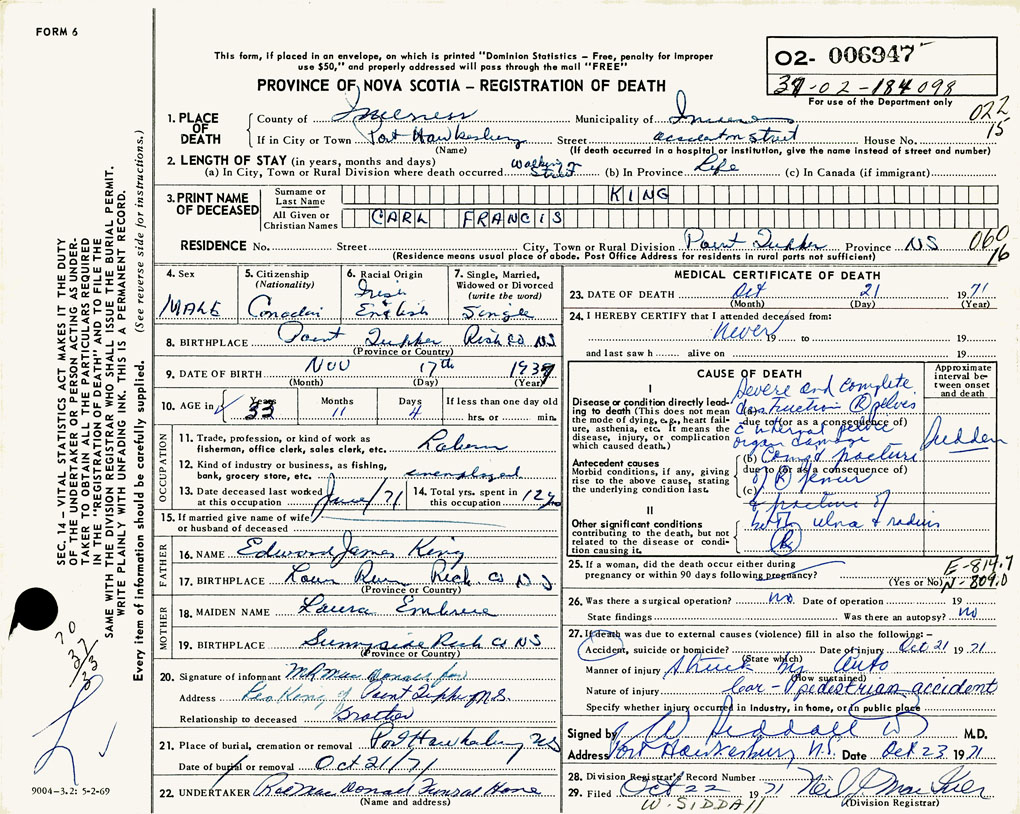 FORM 6
This form, if placed in an envelope, on which is printed "Dominion Statistics – Free, penalty for improper
use $50," and properly addressed will pass through the mail "FREE"
PROVINCE OF NOVA SCOTIA – REGISTRATION OF DEATH
02- 006947
37-02-184098
For use of the Department only
022
15
1. PLACE OF DEATH
County of Inverness Municipality of Inverness
If in City or Town Port Hawkesbury Street House No.
(Name) (If death occurred in a hospital or institution, give the name instead of street and number)
2. LENGTH OF STAY (in years, months and days)
(a) In City, Town or Rural Division where death occurred Walking on Street (b) In Province Life (c) In Canada (if immigrant)
3. PRINT NAME OF DECEASED
Surname or Last Name KING
All Given or Christian Names CARL FRANCIS
RESIDENCE No. Street City, Town or Rural Division Point Tupper Province NS
060
16
(Residence means usual place of abode. Post Office Address for residents in rural parts not sufficient)
4. Sex MALE
5. Citizenship (Nationality) Canadian
6. Racial Origin Irish & English
7. Single, Married, Widowed or Divorced (write the word) Single
8. BIRTHPLACE Point Tupper Rich Co NS
(Province or Country)
9. DATE OF BIRTH Nov 17th 1937
(Month) (Day) (Year)
10. AGE in Years 33 Months 11 Days 4 If less than one day old
hrs. or min.
OCCUPATION
11. Trade, profession, or kind of work as fisherman, office clerk, sales clerk, etc. Laborer
12. Kind of industry or business, as fishing, bank, grocery store, etc. unemployed
13. Date deceased last worked at this occupation June/71
14. Total yrs. spent in this occupation 12 yrs
15. If married give name of wife or husband of deceased
FATHER
16. NAME Edward James King
17. BIRTHPLACE Rich Co NS
(Province or Country)
MOTHER
18. MAIDEN NAME Laura Embree
19. BIRTHPLACE Sunnyside Rich Co NS
(Province or Country)
20. Signature of informant MR MacDonald for
Address Leo King of Point Tupper N.S.
Relationship to deceased Brother
21. Place of burial, cremation or removal Port Hawkesbury NS
Date of burial or removal Oct 21/71
22. UNDERTAKER MacDonald Funeral Home
(Name and address)
MEDICAL CERTIFICATE OF DEATH
23. DATE OF DEATH Oct 21 1971
(Month) (Day) (Year)
24. I HEREBY CERTIFY that I attended deceased from:
Never 19 to 19
and last saw h alive on 19
CAUSE OF DEATH
Approximate interval between onset and death
I
Disease or condition directly leading to death (This does not mean the mode of dying, e.g., heart failure, asthenia, etc. It means the disease, injury, or complication which caused death.)
(a) Severe and complete destruction R pelvis
due to (or as a consequence of)
c internal pelvic organ damage
Sudden
Antecedent causes
Morbid conditions, if any, giving rise to the above cause, stating the underlying condition last.
(b) Comp'd fracture
due to (or as a consequence of)
of R femur
(c)
& fracture of
II
Other significant conditions contributing to the death, but not related to the disease or condition causing it.
both ulna + radius
R
25. If a woman, did the death occur either during pregnancy or within 90 days following pregnancy? (Yes or No)
E-814.7
N-809.0
26. Was there a surgical operation? no Date of operation 19
State findings Was there an autopsy? no
27. If death was due to external causes (violence) fill in also the following:–
Accident, suicide or homicide? Date of injury Oct 21 1971
(State which)
Manner of injury Struck by Auto
(How sustained)
Nature of injury Car - pedestrian accident
Specify whether injury occurred in industry, in home, or in public place
Signed by Siddall M.D.
Address Port Hawkesbury N.S. Date Oct 23 1971
28. Division Registrar's Record Number
29. Filed Oct 22 1971 Neil J. MacIver
W. SIDDALL (Division Registrar)
SEC. 14 – VITAL STATISTICS ACT MAKES IT THE DUTY
OF THE UNDERTAKER OR PERSON ACTING AS UNDERTAKER TO OBTAIN ALL THE PARTICULARS REQUIRED
IN THE "REGISTRATION OF DEATH" AND TO FILE THE
SAME WITH THE DIVISION REGISTRAR WHO SHALL ISSUE THE BURIAL PERMIT.
WRITE PLAINLY WITH UNFADING INK. THIS IS A PERMANENT RECORD.
Every item of information should be carefully supplied. (See reverse side for instructions.)
70
37
33
9004–3.2: 5-2-69